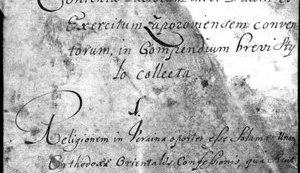 Contenta Pactorum inter Ducem et
Exercitum Zaporoviensem conven
torum, in Compendium brevi Sty
lo collecta.
1.
Religionem in Ucraina oportet esse Solam et Unam
Orthodoxæ Orientalis Confessionis, quæ